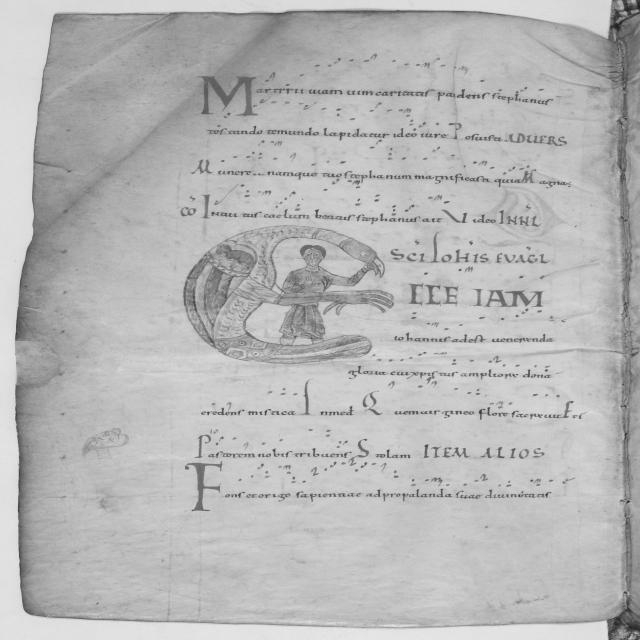 Martyrii viam cum caritatis pandens stephanus
tostando
lapidatur ideo iure Posuisti ADVERS
Munere namque tuo stephanum magnificasti quia Magna
cō Intuitus caelum beatus stephanus ait Video IN NŁ
SCI IOHIS EVAGŁ
ECCE IAM
iohannis adest veneranda
gloria cui xpistus ampliora dona
credens mistica In med Q
flore
Pastorem nobis tribuens Solam ITEM ALIOS
Fons et origo sapientiae ad propalanda suae divinitatis